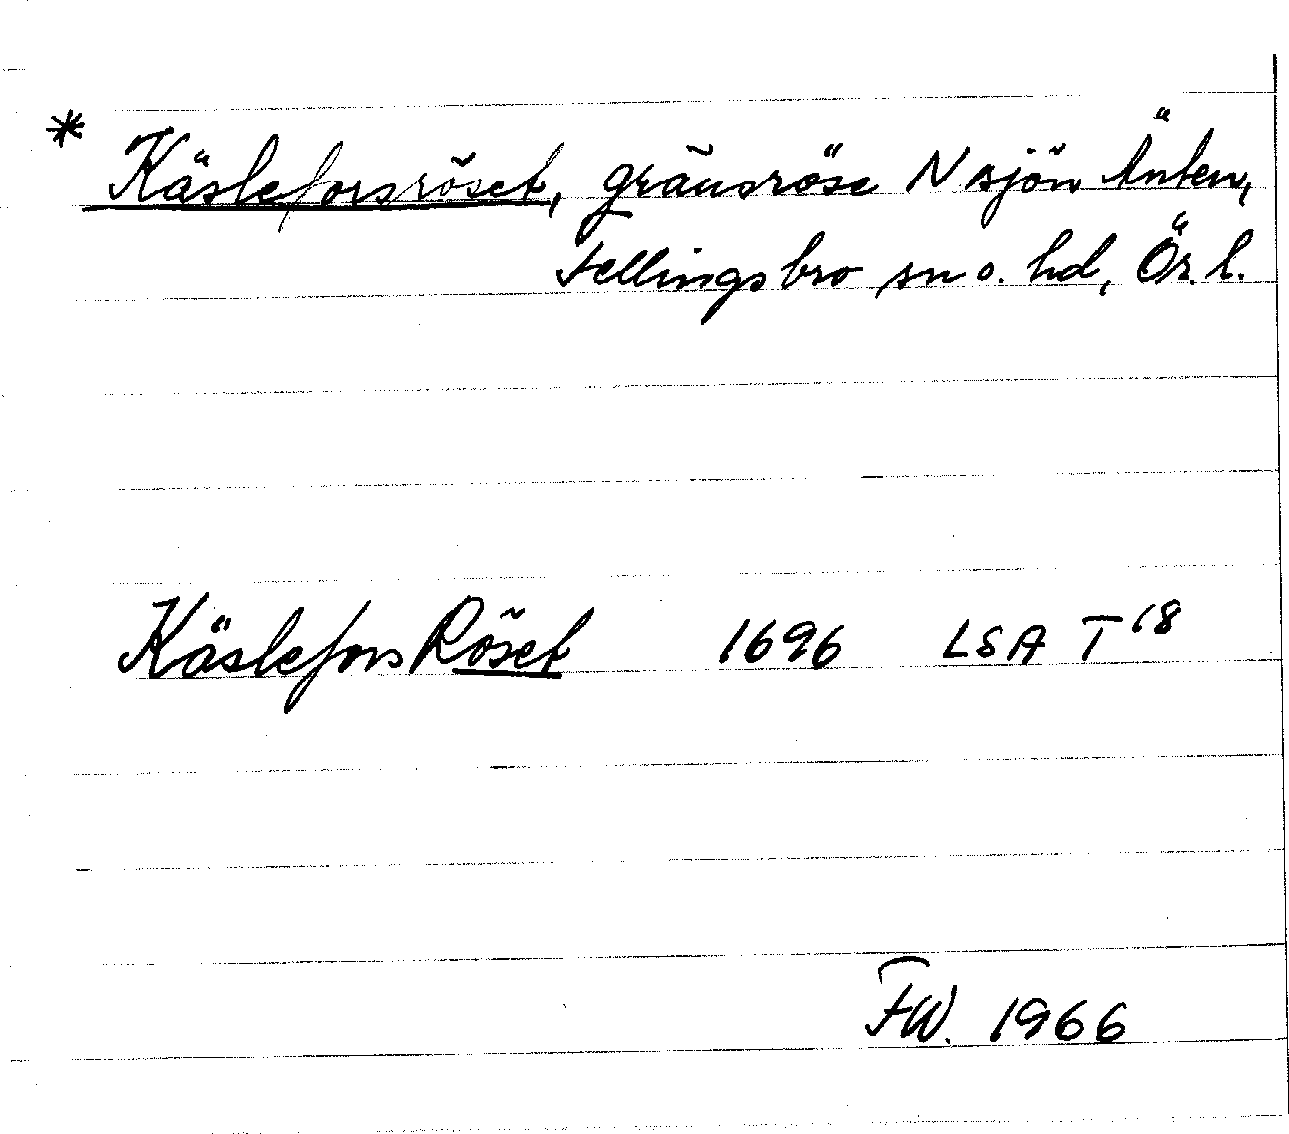 * Käsleforsröset, gränsröse N sjön Änten,
Fellingsbro sn o. hd, Ör. l.
Käslefors Röset 1696 LSA T 18
FW. 1966